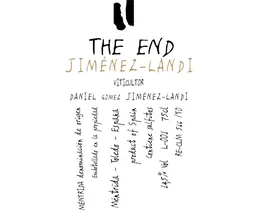 THE END
JIMÉNEZ-LANDI
VITICULTOR
DANIEL GOMEZ JIMÉNEZ-LANDI
MÉNTRIDA denominación de origen
Embotellado en la propiedad
Méntrida - Toledo - España
product of Spain
Contiene sulfitos
L-002 75cl
14,5% Vol
RE-CLM 566/TO